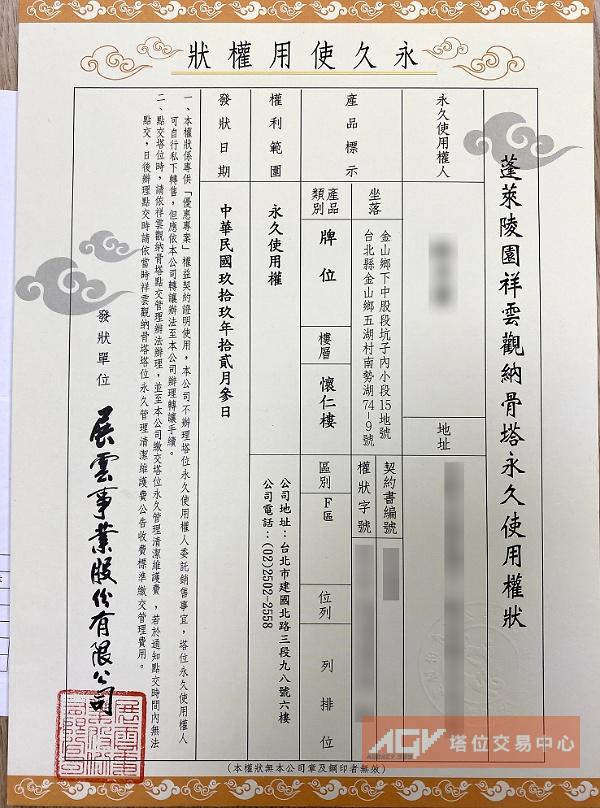 永久使用權狀
蓬萊陵園祥雲觀納骨塔永久使用權狀
永久使用權人
地址
產品標示
坐落
金山鄉下中股段坑子內小段15地號
台北縣金山鄉五湖村南勢湖74-9號
契約書編號
權狀字號
產品類別
牌位
樓層
懷仁樓
區別
F區
位列
列 排 位
權利範圍
永久使用權
公司地址：台北市建國北路三段九八號六樓
公司電話：(02)2502-2558
發狀日期
中華民國玖拾玖年拾貳月參日
一、本權狀係專供「優惠專案」權益契約證明使用，本公司不辦理塔位永久使用權人委託銷售事宜，塔位永久使用權人
可自行私下轉售，但應依本公司轉讓辦法至本公司辦理轉讓手續。
二、點交塔位時，請依祥雲觀納骨塔點交管理辦法辦理，並至本公司繳交塔位永久管理清潔維護費，若於通知點交時間內無法
點交，日後辦理點交時請依當時祥雲觀納骨塔塔位永久管理清潔維護費公告收費標準繳交管理費用。
發狀單位
展雲事業股份有限公司
(本權狀無本公司章及鋼印者無效)
AGV 塔位交易中心